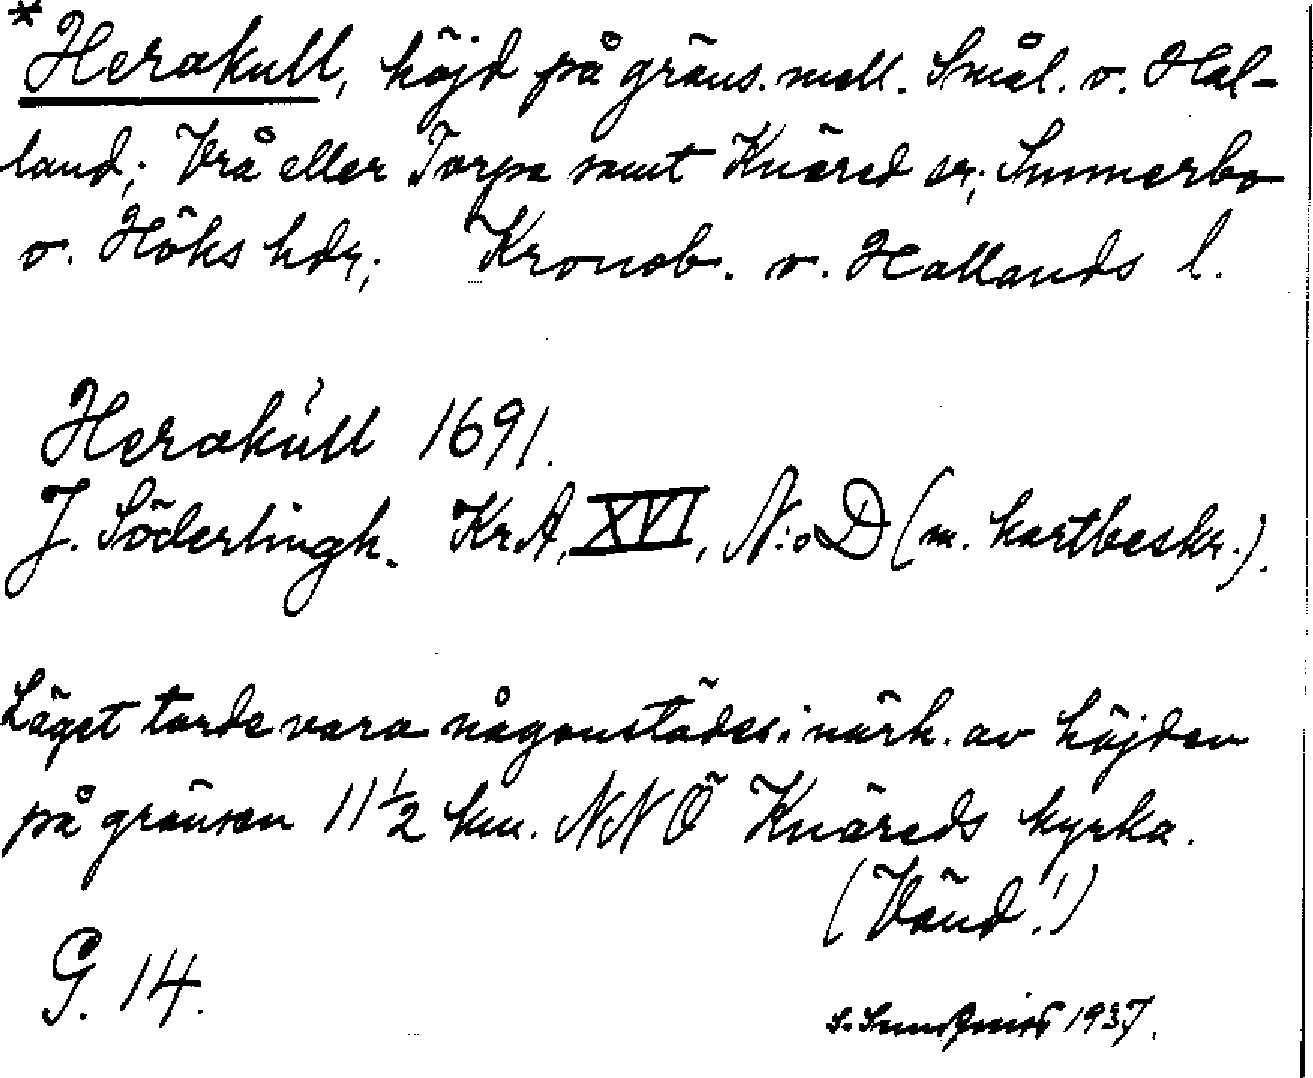 *Herakull, höjd på gräns. mell. Smål. o. Hal-
land; Vrå eller Torpa samt Knäred sn; Sunnerbo
o. Höks hdr; Kronob. o. Hallands l.
Herakull 1691.
J. Söderlingh. Kr.A. XVI, N:o D (m. kartbeskr.).
Läget torde vara någonstädes i närh. av höjden
på gränsen 11 1/2 km. NNÖ Knäreds kyrka.
(Vänd!)
G. 14.
S. Sundqvist 1937.